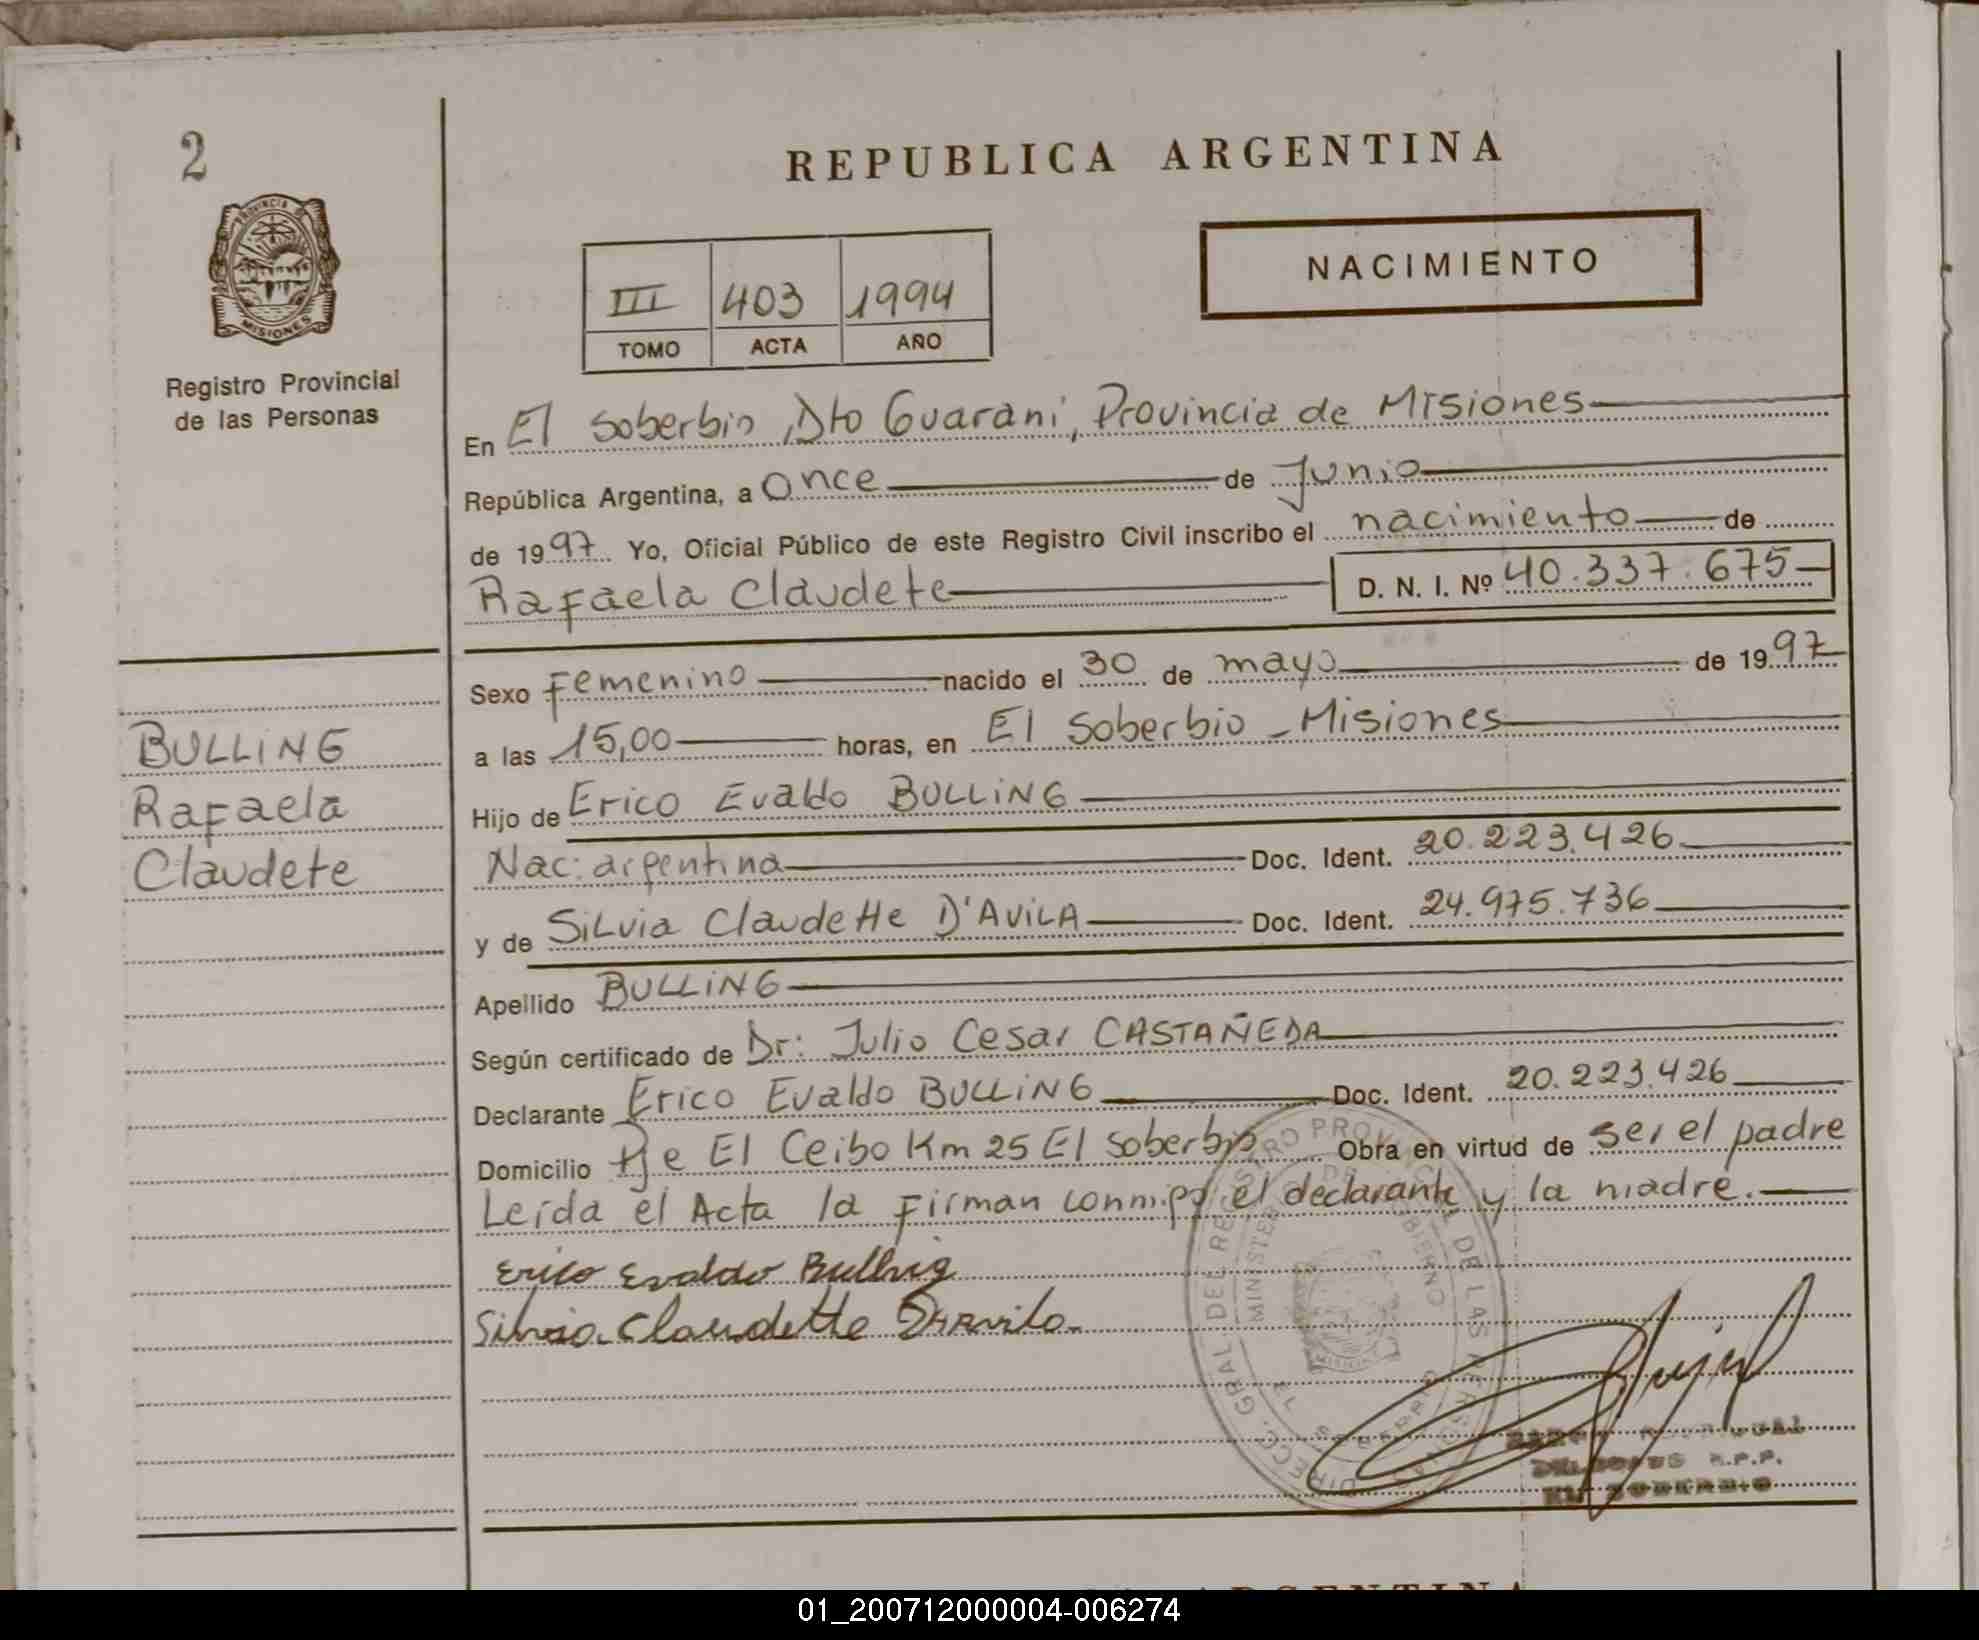 2
REPUBLICA ARGENTINA
PROVINCIA DE
MISIONES
Registro Provincial
de las Personas
III 403 1994
TOMO ACTA AÑO
NACIMIENTO
En El Soberbio, Dto Guarani, Provincia de Misiones
República Argentina, a Once de Junio
de 1997 Yo, Oficial Público de este Registro Civil inscribo el nacimiento de
Rafaela Claudete D. N. I. Nº 40.337.675
Sexo Femenino nacido el 30 de mayo de 1997
a las 15,00 horas, en El Soberbio - Misiones
Hijo de Erico Evaldo BULLING
Nac: argentina Doc. Ident. 20.223.426
y de Silvia Claudette D'AVILA Doc. Ident. 24.975.736
Apellido BULLING
Según certificado de Dr: Julio Cesar CASTAÑEDA
Declarante Erico Evaldo BULLING Doc. Ident. 20.223.426
Domicilio Pje El Ceibo Km 25 El Soberbio Obra en virtud de ser el padre
Leída el Acta la Firman conmigo el declarante y la madre.
Erico Evaldo Bulling
Silvia Claudette D'Avila
BULLING
Rafaela
Claudete
DIRECC. GRAL. DEL REGISTRO PROVINCIAL DE LAS PERSONAS
R.P.P.
EL SOBERBIO
ARGENTINA
01_200712000004-006274